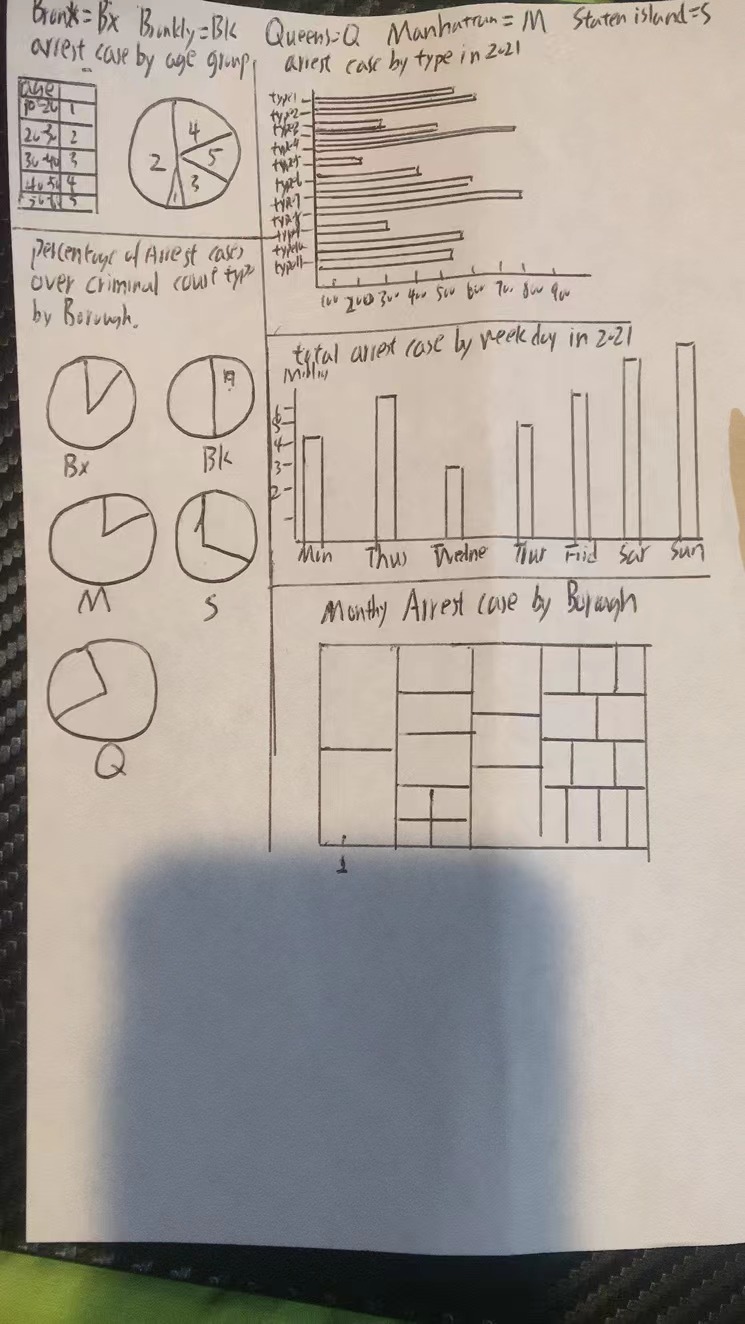 Bronx=Bx Bronkly=BK Queens=Q Manhattan=M Staten island=S
arrest case by age group,
age
10-20 1
20-30 2
30-40 3
40-50 4
5
4
2
5
3
1
arrest case by type in 2021
type1
type2
type3
type4
type5
type6
type7
type8
type9
type10
type11
100 200 300 400 500 600 700 800 900
percentage of Arrest cases
over criminal court type
by Borough.
Bx
BK
M
S
Q
total arrest case by weekday in 2021
6
5
4
3
2
Mon Thus Wedne Thur Frid Sat Sun
Monthy Arrest case by Borough
1